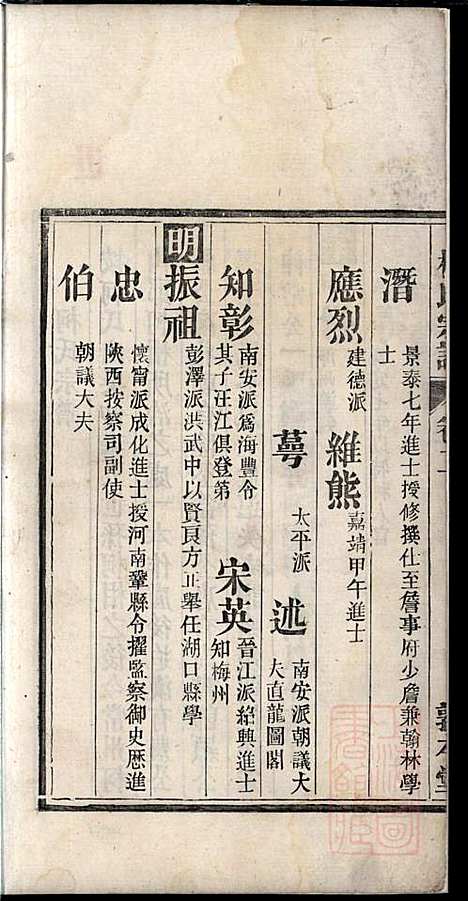 潛 景泰七年進士授修撰仕至詹事府少詹兼翰林學士
應烈 建德派 維熊 嘉靖甲午進士
蕚 太平派 述 南安派朝議大夫直龍圖閣
知彰 南安派爲海豐令其子汪江俱登第 宋英 晉江派紹興進士知梅州
明 振祖 彭澤派洪武中以賢良方正舉任湖口縣學
忠 懷甯派成化進士授河南鞏縣令擢監察御史歷進陝西按察司副使
伯 朝議大夫